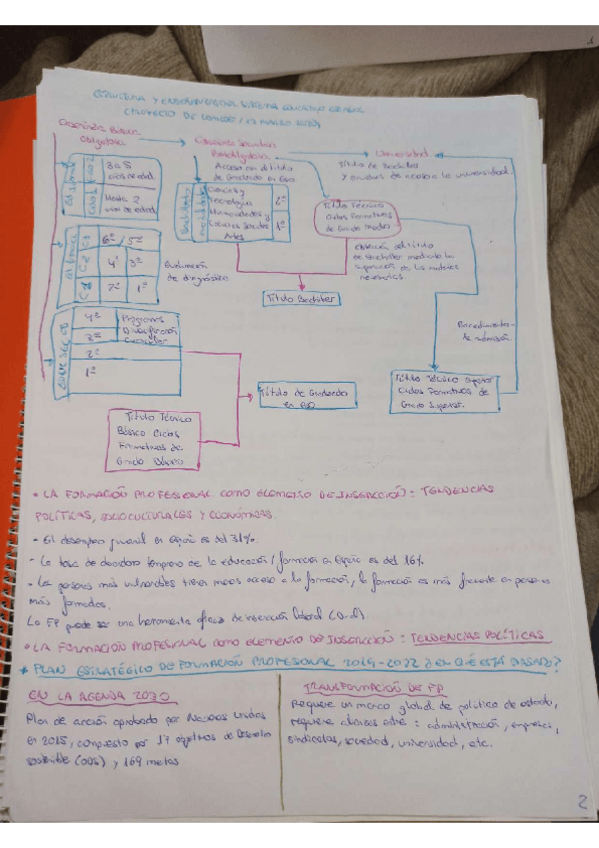 ESTRUCTURA Y SISTEMA EDUCATIVO ESPAÑOL
(PROYECTO DE
Enseñanza Básica
Obligatoria
Enseñanza Secundaria
Postobligatoria
Universidad
Acceso con el título
de Graduado en ESO
Título de Bachiller
y pruebas de acceso a la universidad.
Ed. Infantil
Ciclo 2
3 a 5
años de edad
Ciclo 1
Hasta 2
años de edad
Bachillerato
modalidades
Ciencias y
Tecnología
Humanidades y
Ciencias Sociales
Artes
2º
1º
Título Técnico
Ciclos Formativos
de Grado Medio
Obtención del título
de Bachiller mediante la
superación de las materias
necesarias.
C3
6º / 5º
C2
4º 3º
C1
2º 1º
Evaluación
de diagnóstico
Título Bachiller
Procedimientos
de admisión
4º
Programas
Diversificación
Curricular
3º
2º
1º
Título Técnico Superior
Ciclos Formativos de
Grado Superior.
Título de Graduado
en ESO
Título Técnico
Básico Ciclos
Formativos de
Grado Básico
• LA FORMACIÓN PROFESIONAL COMO ELEMENTO DE INSERCCIÓN: TENDENCIAS
POLÍTICAS, SOCIOCULTURALES Y ECONÓMICAS.
- El desempleo juvenil en España es del 31%.
- La tasa de abandono temprano de la educación/formación en España es del 16%
- Las personas más vulnerables tienen menos acceso a la formación, la formación es más frecuente en personas
más formadas.
La FP puede ser una herramienta eficaz de inserción laboral
• LA FORMACIÓN PROFESIONAL COMO ELEMENTO DE INSERCCIÓN: TENDENCIAS POLÍTICAS
* PLAN ESTRATÉGICO DE FORMACIÓN PROFESIONAL 2019-2022 ¿EN QUÉ ESTÁ BASADO?
EN LA AGENDA 2030
Plan de acción aprobado por Naciones Unidas
en 2015, compuesto por 17 objetivos de Desarrollo
sostenible (ODS) y 169 metas
TRANSFORMACIÓN DE FP
Requiere un marco global de política de estado,
requiere alianzas entre: administración, empresas,
sindicatos, sociedad, universidad, etc.
2